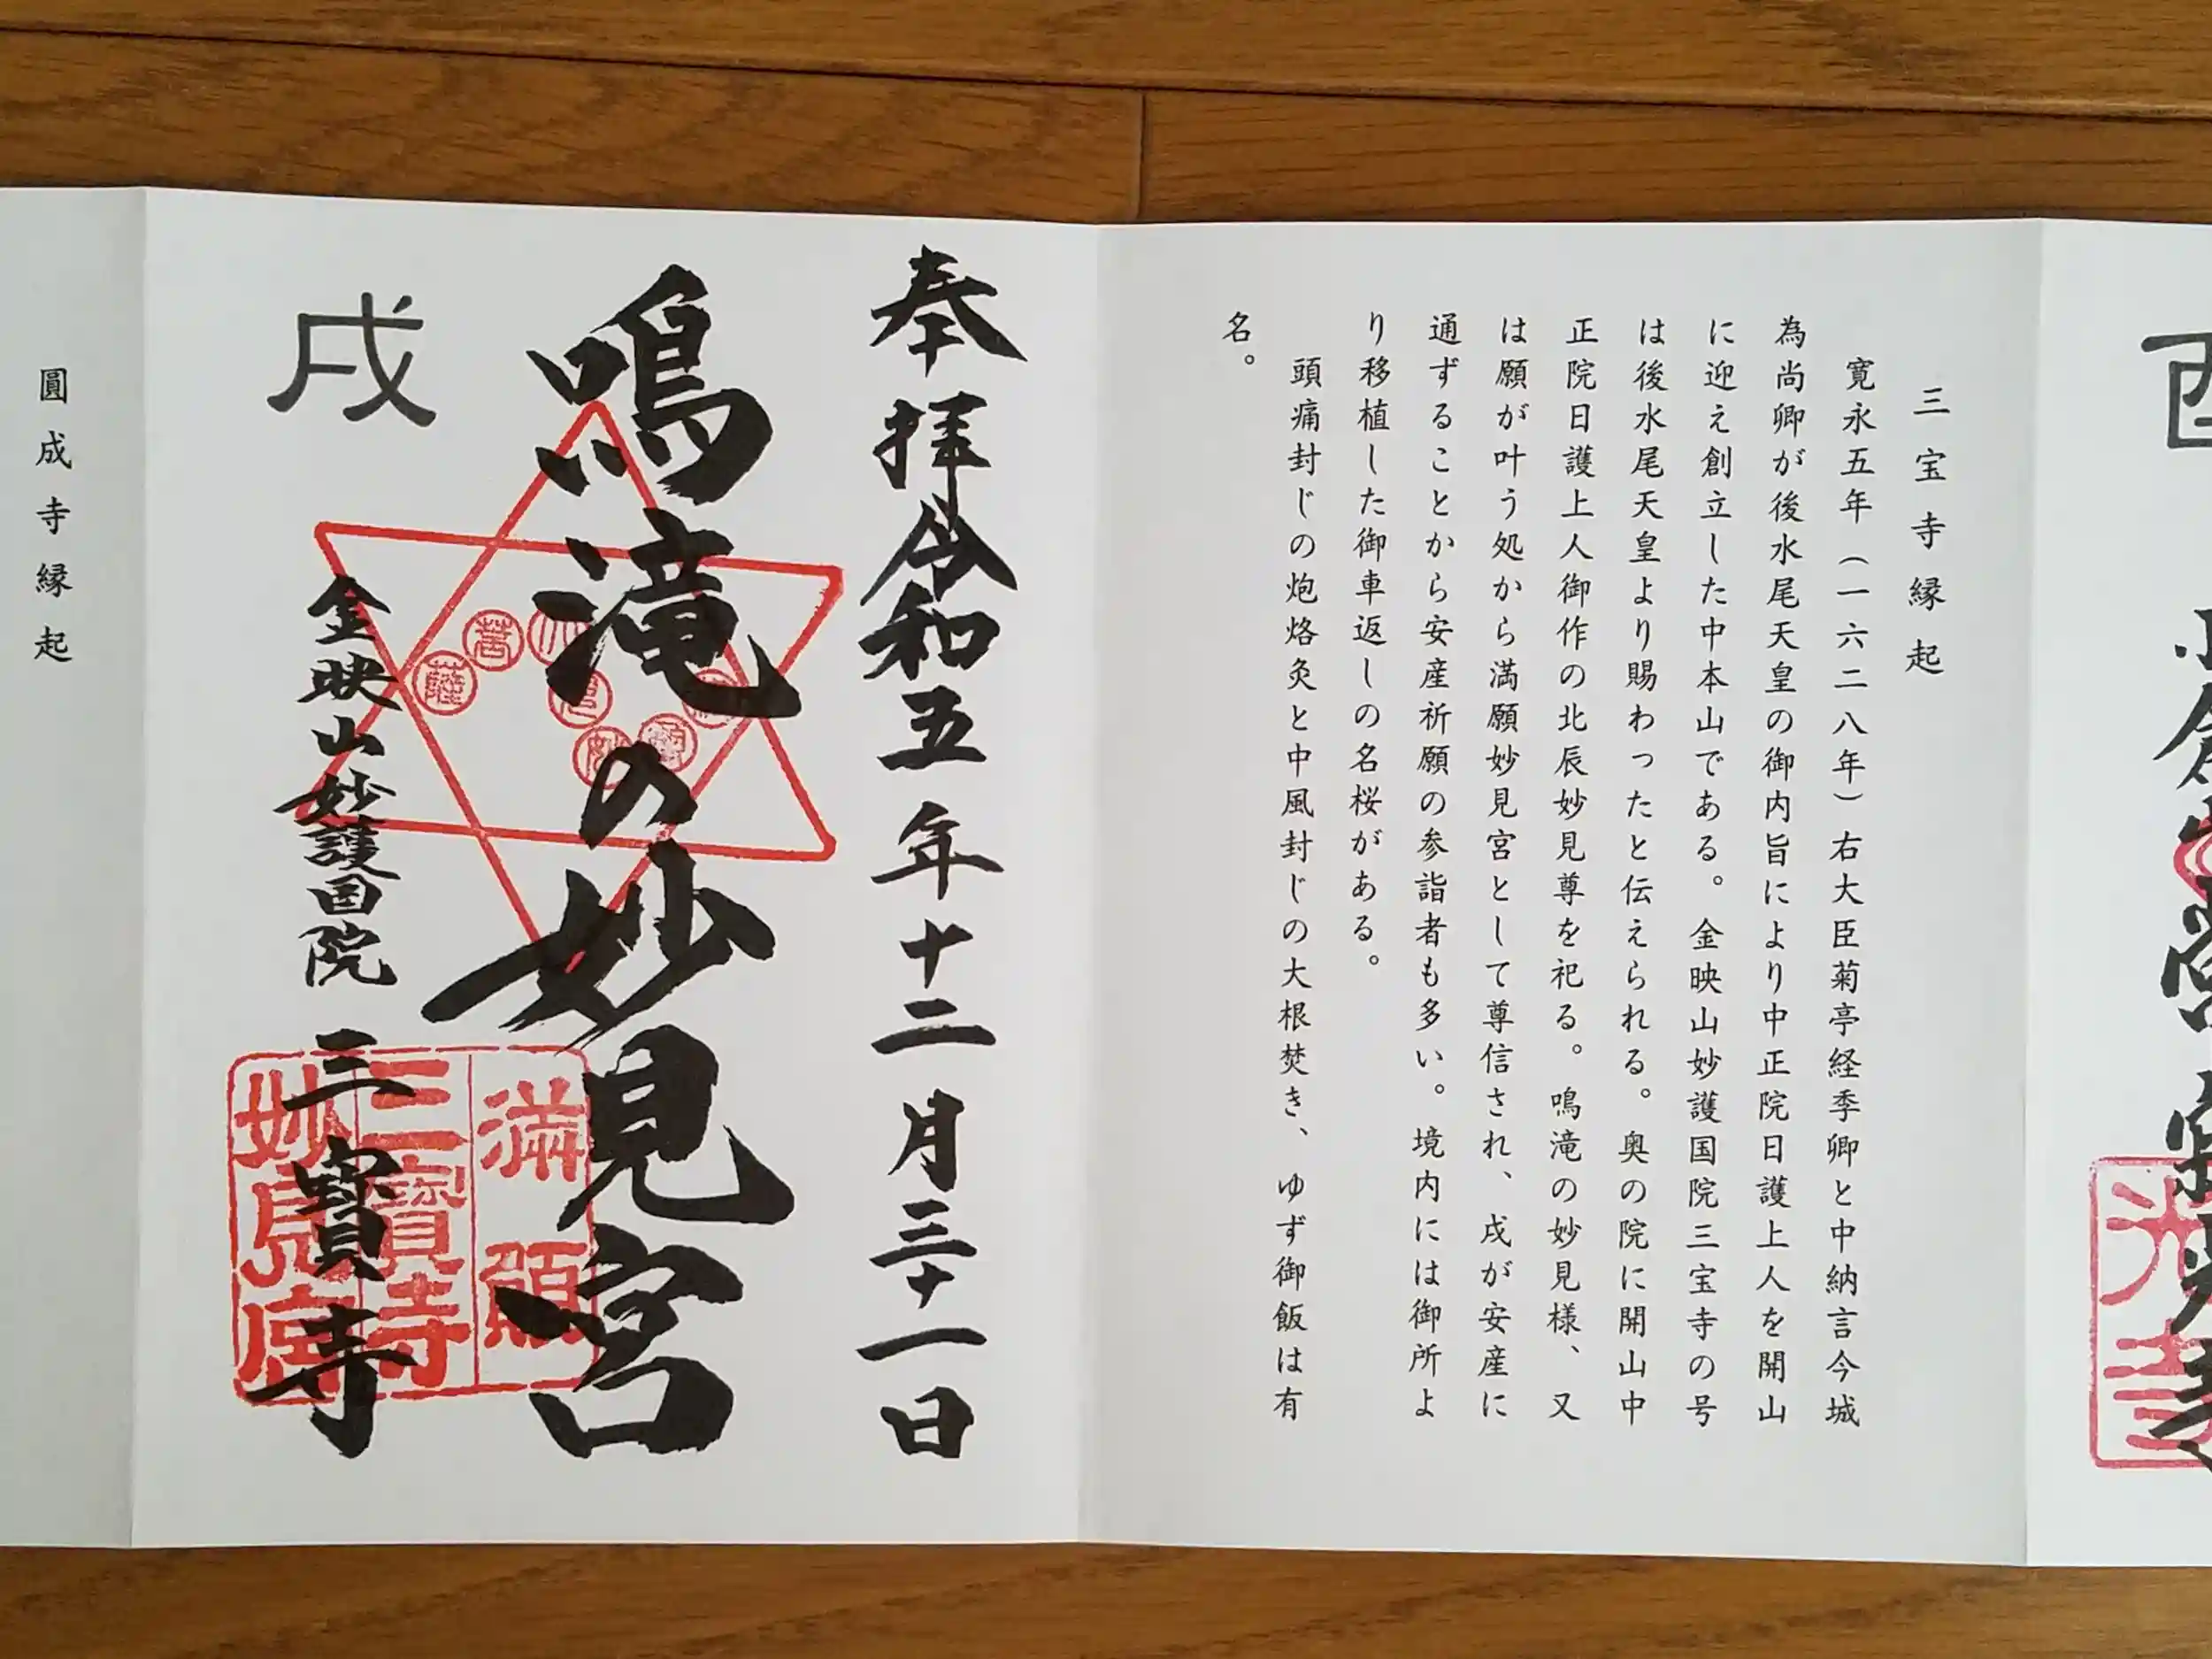 酉
三宝寺縁起
寛永五年（一六二八年）右大臣菊亭経季卿と中納言今城
為尚卿が後水尾天皇の御内旨により中正院日護上人を開山
に迎え創立した中本山である。金映山妙護国院三宝寺の号
は後水尾天皇より賜わったと伝えられる。奥の院に開山中
正院日護上人御作の北辰妙見尊を祀る。鳴滝の妙見様、又
は願が叶う処から満願妙見宮として尊信され、戌が安産に
通ずることから安産祈願の参詣者も多い。境内には御所よ
り移植した御車返しの名桜がある。
頭痛封じの炮烙灸と中風封じの大根焚き、ゆず御飯は有
名。
奉拝令和五年十二月三十一日
鳴滝の妙見宮
戌
金映山妙護国院 三寶寺
満願
三寶寺
妙見宮
圓成寺縁起